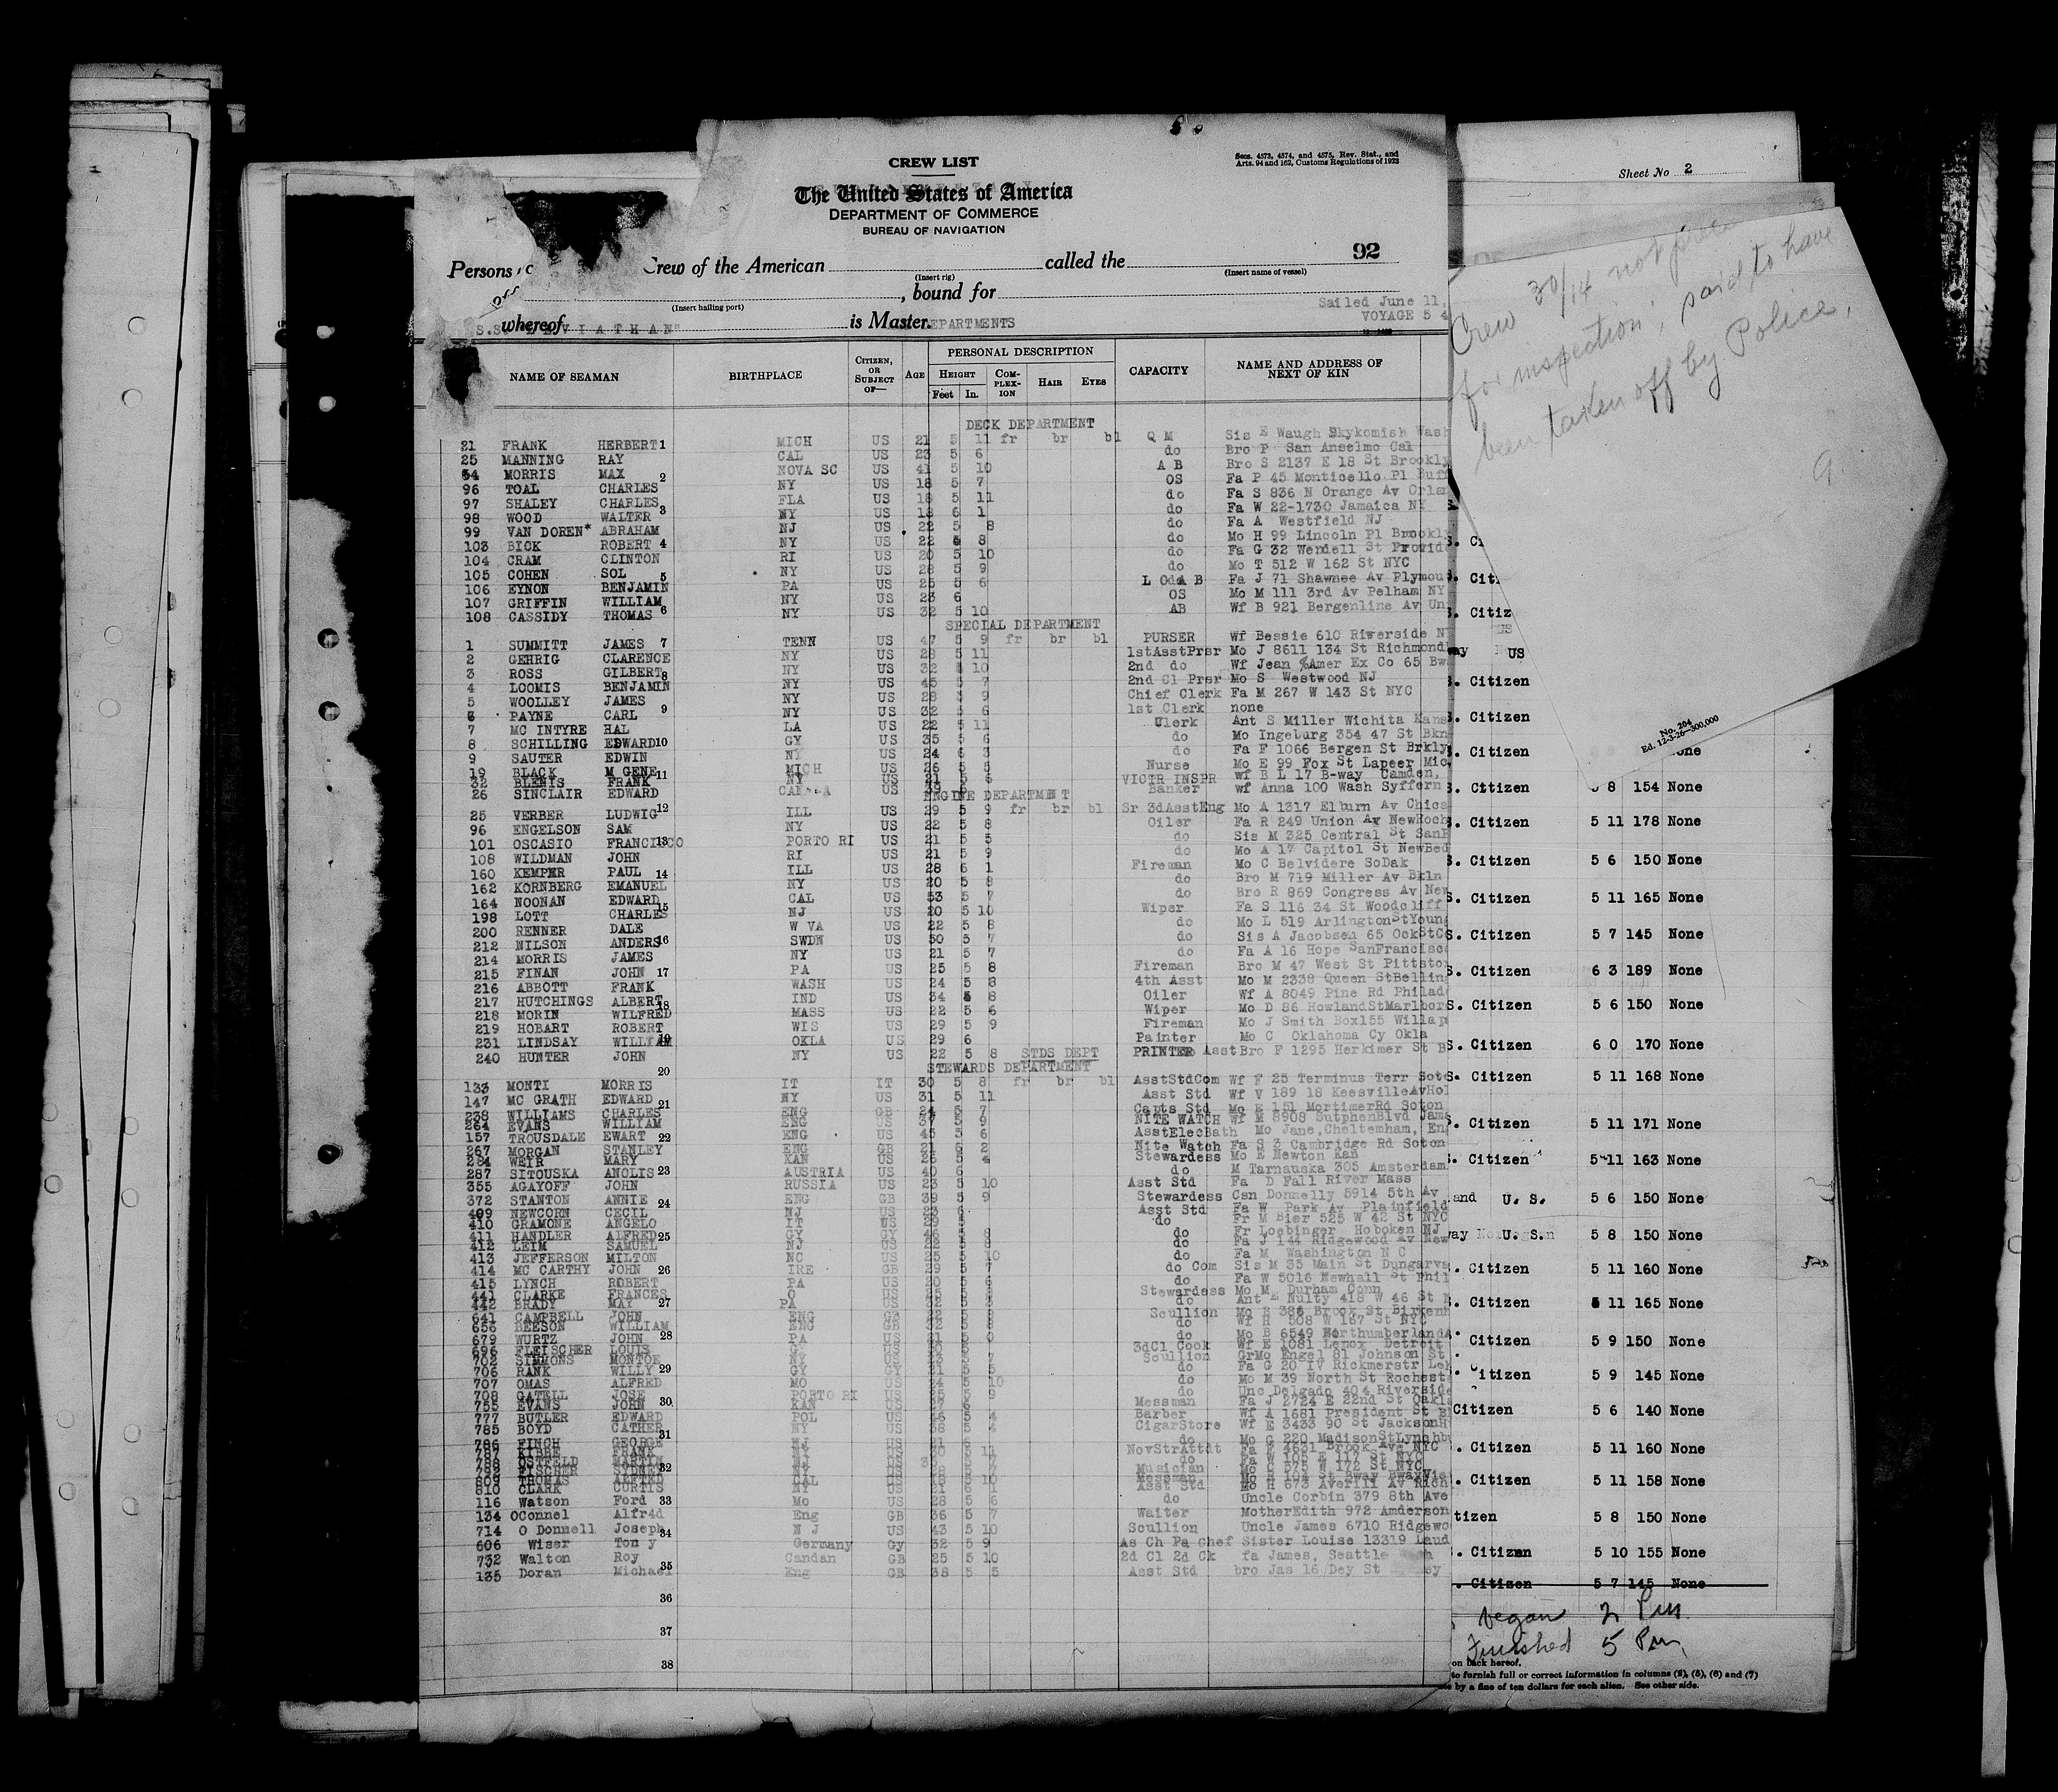 CREW LIST
Secs. 4573, 4574, and 4575, Rev. Stat., and
Arts. 94 and 162, Customs Regulations of 1923
The United States of America
DEPARTMENT OF COMMERCE
BUREAU OF NAVIGATION
92
Persons Crew of the American called the
(Insert rig) (Insert name of vessel)
, bound for
(Insert hailing port)
Sailed June 11,
VOYAGE 5 4
whereof is Master.
S.S. "LEVIATHAN" DEPARTMENTS
NAME OF SEAMAN BIRTHPLACE CITIZEN, OR SUBJECT OF— AGE PERSONAL DESCRIPTION CAPACITY NAME AND ADDRESS OF NEXT OF KIN
HEIGHT COMPLEXION HAIR EYES
Feet In.
DECK DEPARTMENT
21 FRANK HERBERT 1 MICH US 21 5 11 fr br bl Q M Sis E Waugh Skykomish Wash
25 MANNING RAY CAL US 23 5 6 do Bro P San Anselmo Cal
54 MORRIS MAX 2 NOVA SC US 41 5 10 A B Bro S 2137 E 18 St Brookly
96 TOAL CHARLES NY US 18 5 7 OS Fa P 45 Monticello Pl Buff
97 SHALEY CHARLES 3 FLA US 18 5 11 do Fa S 836 N Orange Av Orlan
98 WOOD WALTER NY US 18 6 1 do Fa W 22-1730 Jamaica NY
99 VAN DOREN* ABRAHAM NJ US 22 5 8 do Fa A Westfield NJ
103 BICK ROBERT 4 NY US 22 8 do Mo H 99 Lincoln Pl Brookly
104 CRAM CLINTON RI US 20 5 10 do Fa G 32 Wendell St Provid
105 COHEN SOL 5 NY US 28 5 9 do Mo T 512 W 162 St NYC
106 EYNON BENJAMIN PA US 25 5 6 A B Fa J 71 Shawnee Av Plymou
107 GRIFFIN WILLIAM NY US 23 6 OS Mo M 111 3rd Av Pelham NY
108 CASSIDY THOMAS 6 NY US 32 5 10 AB Wf B 921 Bergenline Av Un
SPECIAL DEPARTMENT
1 SUMMITT JAMES 7 TENN US 47 5 9 fr br bl PURSER Wf Bessie 610 Riverside N
2 GEHRIG CLARENCE NY US 28 5 11 1stAsstPrsr Mo J 8611 134 St Richmond
3 ROSS GILBERT 8 NY US 32 10 2nd do Wf Jean Amer Ex Co 65 Bw
4 LOOMIS BENJAMIN NY US 45 5 7 2nd Cl Prsr Mo S Westwood NJ
5 WOOLLEY JAMES NY US 28 5 9 Chief Clerk Fa M 267 W 143 St NYC
6 PAYNE CARL 9 NY US 32 5 6 1st Clerk none
7 MC INTYRE HAL LA US 22 5 11 Clerk Ant S Miller Wichita Kans
8 SCHILLING EDWARD 10 GY US 35 5 6 do Mo Ingeburg 354 47 St Bkn
9 SAUTER EDWIN NY US 24 6 3 do Fa F 1066 Bergen St Brkly
19 BLACK M GENE MICH US 26 5 5 Nurse Mo E 99 Fox St Lapeer Mic
32 BLENIS FRANK 11 NY US 21 5 6 VICTR INSPR wf B L 17 B-way Camden,
26 SINCLAIR EDWARD CANADA US 39 Banker wf Anna 100 Wash Syffern
ENGINE DEPARTMENT
25 VERBER LUDWIG 12 ILL US 29 5 9 fr br bl Sr 3dAsstEng Mo A 1317 Elburn Av Chica
96 ENGELSON SAM NY US 22 5 8 Oiler Fa R 249 Union Av NewRoch
101 OSCASIO FRANCISCO 13 PORTO RI US 21 5 5 do Sis M 325 Central St San
108 WILDMAN JOHN RI US 21 5 9 do Mo A 17 Capitol St NewBed
160 KEMPER PAUL 14 ILL US 28 6 1 Fireman Mo C Belvidere SoDak
162 KORNBERG EMANUEL NY US 20 5 8 do Bro M 719 Miller Av Bkln
164 NOONAN EDWARD CAL US 53 5 7 do Bro R 869 Congress Av New
198 LOTT CHARLES 15 NJ US 20 5 10 Wiper Fa S 116 34 St Woodcliff
200 RENNER DALE W VA US 22 5 8 do Mo L 519 ArlingtonStYoung
212 NILSON ANDERS 16 SWDN US 50 5 7 do Sis A Jacobsen 65 OckStC
214 MORRIS JAMES NY US 21 5 7 do Fa A 16 Hope SanFrancisco
215 FINAN JOHN 17 PA US 25 5 8 Fireman Bro M 47 West St Pittston
216 ABBOTT FRANK WASH US 24 5 8 4th Asst Mo M 2338 Queen StBellin
217 HUTCHINGS ALBERT 18 IND US 34 8 Oiler Wf A 8049 Pine Rd Philad
218 MORIN WILFRED MASS US 22 5 6 Wiper Mo D 86 HowlandStMarlbor
219 HOBART ROBERT WIS US 29 5 9 Fireman Mo J Smith Box155 Willap
231 LINDSAY WILLIAM 19 OKLA US 29 6 Painter Mo C Oklahoma Cy Okla
240 HUNTER JOHN NY US 22 5 8 STDS DEPT PRINTER Asst Bro F 1295 Herkimer St B
20 STEWARDS DEPARTMENT
133 MONTI MORRIS IT IT 30 5 8 fr br bl AsstStdCom Wf F 25 Terminus Terr Sot
147 MC GRATH EDWARD NY US 31 5 11 Asst Std Wf V 189 18 KeesvilleAvHol
238 WILLIAMS CHARLES 21 ENG GB 24 5 7 Capts Std Mo E 151 MortimerRd Soton
264 EVANS WILLIAM ENG US 37 5 9 NITE WATCH Wf M 8908 SutphenBlvd Jama
157 TROUSDALE EWART 22 ENG US 45 5 6 AsstElecBath Mo Jane, Cheltemham, En
267 MORGAN STANLEY ENG GB 21 6 2 Nite Watch Fa S 3 Cambridge Rd Soton
284 WEIR MARY KAN US 26 4 Stewardess Mo E Newton Kan
287 SITOUSKA ANOLIS 23 AUSTRIA US 40 6 do M Tarnauska 305 Amsterdam
355 AGAYOFF JOHN RUSSIA US 23 5 10 Asst Std Fa D Fall River Mass
372 STANTON ANNIE 24 ENG GB 39 5 9 Stewardess Csn Donnelly 5914 5th Av
409 NEWCORN CECIL NJ US 23 6 Asst Std Fa W Park Av Plainfield
410 GRAMONE ANGELO IT US 29 5 do Fr M Bier 525 W 42 St NYC
411 HANDLER ALFRED 25 GY GY 46 5 8 do Fr Loebinger Hoboken NJ
412 LEIM SAMUEL NJ US 22 5 8 do Fa J 144 Ridgewood Av New
413 JEFFERSON MILTON NC US 25 5 10 do Fa M Washington N C
414 MC CARTHY JOHN 26 IRE GB 29 5 7 do Com Sis M 35 Main St Dungarva
415 LYNCH ROBERT PA US 20 5 6 do Fa W 5016 Newhall St Phil
441 CLARKE FRANCES O US Stewardess Mo M Durham Conn
442 BRADY MAY 27 PA US 32 5 do Ant E Nulty 418 W 46 St
641 CAMPBELL JOHN ENG Scullion Mo E 386 Brook St Birkenh
656 BEESON WILLIAM ENG GB do Wf H 508 W 167 St NYC
679 WURTZ JOHN 28 PA US 21 5 0 do Mo B 6549 Northumberland
696 FLEISCHER LOUIS US 3dCl Cook Wf E 1081 Lenox Detroit
702 SIMMONS MONTOE NY US Scullion GrMo Engel 81 Johnson St
706 RANK WILLY 29 GY GY 21 5 5 do Fa G 20 IV Rickmerstr Leh
707 OMAS ALFRED MO US 24 5 10 do Mo M 39 North St Rochest
708 GATELL JOSE PORTO RI US 25 5 9 do Unc Delgado 404 Riverside
755 EVANS JOHN 30 KAN US 27 6 Messman Fa J 2724 E 22nd St Oakl
777 BUTLER EDWARD POL US 46 5 4 Barber Wf A 1681 President St B
785 BOYD CATHER 31 NY US 38 5 4 CigarStore Wf E 3433 90 St JacksonH
786 FINCH GEORGE NJ US do Mo G 220 MadisonStLynchb
787 KIBBE FRANK US 11 NovStrAttdt Fa F 4631 Brook Ave NYC
788 OSTFELD MARTIN NJ do Fa W 105 E 117 St NYC
792 FISCHER SYDNEY 32 Musician Mo C 575 W 172 St NYC
809 THOMAS ALFTED CAL US 10 Messman
810 CLARK CURTIS NY US 21 6 1 Asst Std Mo H 673 Av Rich
116 Watson Ford 33 Mo US 28 5 6 do Uncle Corbin 379 8th Ave
134 OConnel Alfr4d Eng GB 36 5 7 Waiter MotherEdith 972 Amderson
714 O Donnell Joseph 34 N J US 43 5 10 Scullion Uncle James 6710 Ridgewo
606 Wiser Ton y Germany Gy 32 5 9 As Ch Pa Chef Sister Louise 13319 Laud
732 Walton Roy Candan GB 25 5 10 2d Cl 2d Ck fa James, Seattle
135 Doran Michael 35 Eng GB 38 5 5 Asst Std bro Jas 16 Dey St
36
37
38
Sheet No 2
Crew 30/14 not
for inspection, said to have
been taken off by Police,
9
No. 204
Ed. 12-3-26—300,000
US
. Citizen
. Citizen
. Citizen
. Citizen 8 154 None
. Citizen 5 11 178 None
. Citizen 5 6 150 None
S. Citizen 5 11 165 None
S. Citizen 5 7 145 None
S. Citizen 6 3 189 None
S. Citizen 5 6 150 None
S. Citizen 6 0 170 None
S. Citizen 5 11 168 None
S. Citizen 5 11 171 None
. Citizen 5 11 163 None
and U. S. 5 6 150 None
way U. S. 5 8 150 None
. Citizen 5 11 160 None
. Citizen 11 165 None
Citizen 5 9 150 None
itizen 5 9 145 None
Citizen 5 6 140 None
. Citizen 5 11 160 None
. Citizen 5 11 158 None
tizen 5 8 150 None
. Citizen 5 10 155 None
. Citizen 5 7 145 None
began 2 Pm
Finished 5 Pm
on back hereof.
to furnish full or correct information in columns (2), (5), (6) and (7)
by a fine of ten dollars for each alien. See other side.